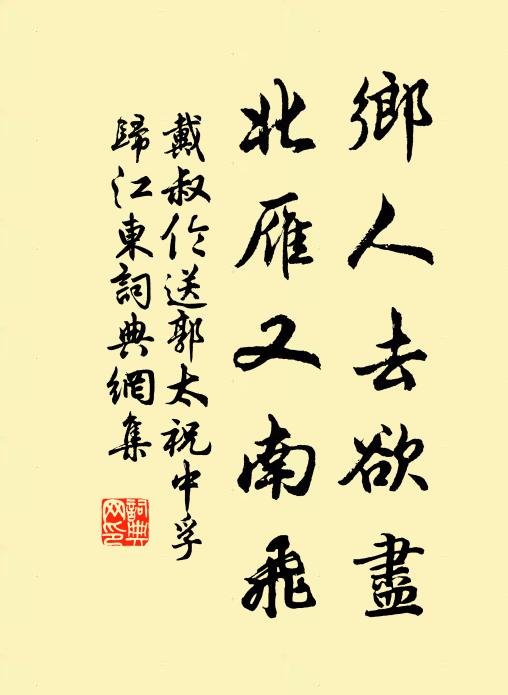 鄉人去欲盡
北雁又南飛
戴叔伦送郭太祝中孚
歸江東詞典網集
詞典
网印